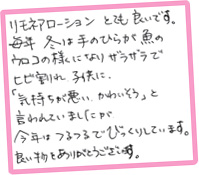 リモネアローション とても良いです。
毎年 冬は手のひらが 魚の
ウロコの様になり ザラザラで
ヒビ割れ 子供に、
「気持ちが悪い、かわいそう」と
言われていましたが
今年はつるつるでびっくりしています。
良い物をありがとうございます。